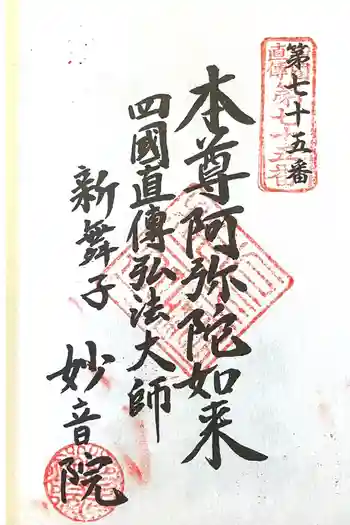 第七十五番
本尊阿弥陀如来
四國直傳弘法大師
新舞子
妙音院